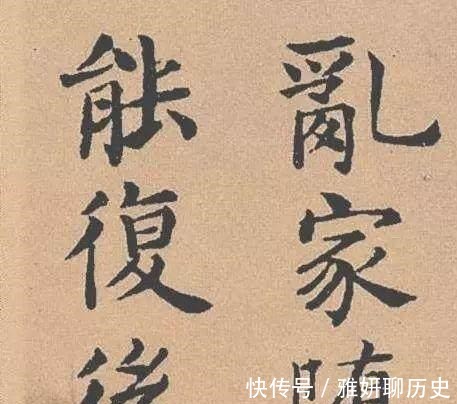 亂家
能復後
快传号 / 雅妍聊历史